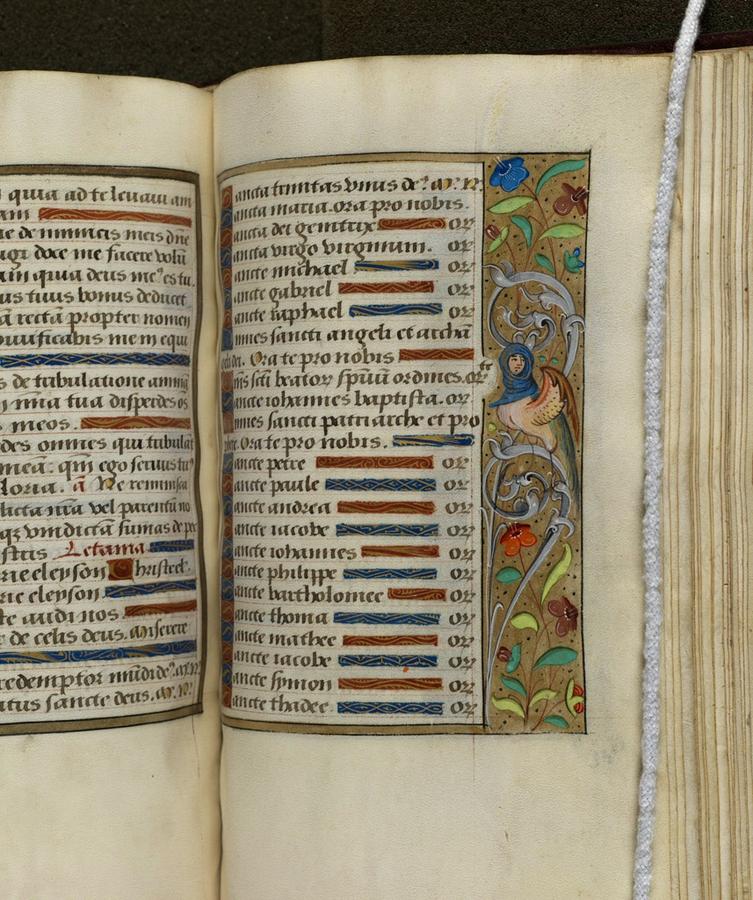 quia ad te levavi am
am
me de inimicis meis dne
doce me facere volu
quia deus me⁹ es tu.
us tuus bonus deducet
rectā propter nomen
vivificabis me in equi
s de tribulatione animā
in mīa tua disperdes os
meos.
des omnes qui tribulāt
meā: qm̄ ego servus tu⁹
loria. ā Ne reminisca
licta nr̄a vel parentū nr̄o
qz vindictā sumas de pec
stris Letania
rie eleyson Christe el.
rie eleyson
te audi nos
r de celis deus. miserere
redemptor mūdi de⁹. m̄. n̄.
itas sancte deus. m̄. n̄.
ancta trinitas unus de⁹. m̄. n̄.
ancta maria. ora pro nobis.
ancta dei genitrix or
ancta virgo virginum. or
ancte michael or
ancte gabriel or
ancte raphael or
mnes sancti angeli et archā
geli dei. Orate pro nobis
mn̄s scti beator spūū ordines. or
ancte iohannes baptista. or
mnes sancti patriarche et pro
phete. Orate pro nobis.
ancte petre or
ancte paule or
ancte andrea or
ancte iacobe or
ancte iohannes or
ancte philippe or
ancte bartholomee or
ancte thoma or
ancte mathee or
ancte iacobe or
ancte symon or
ancte thadee or